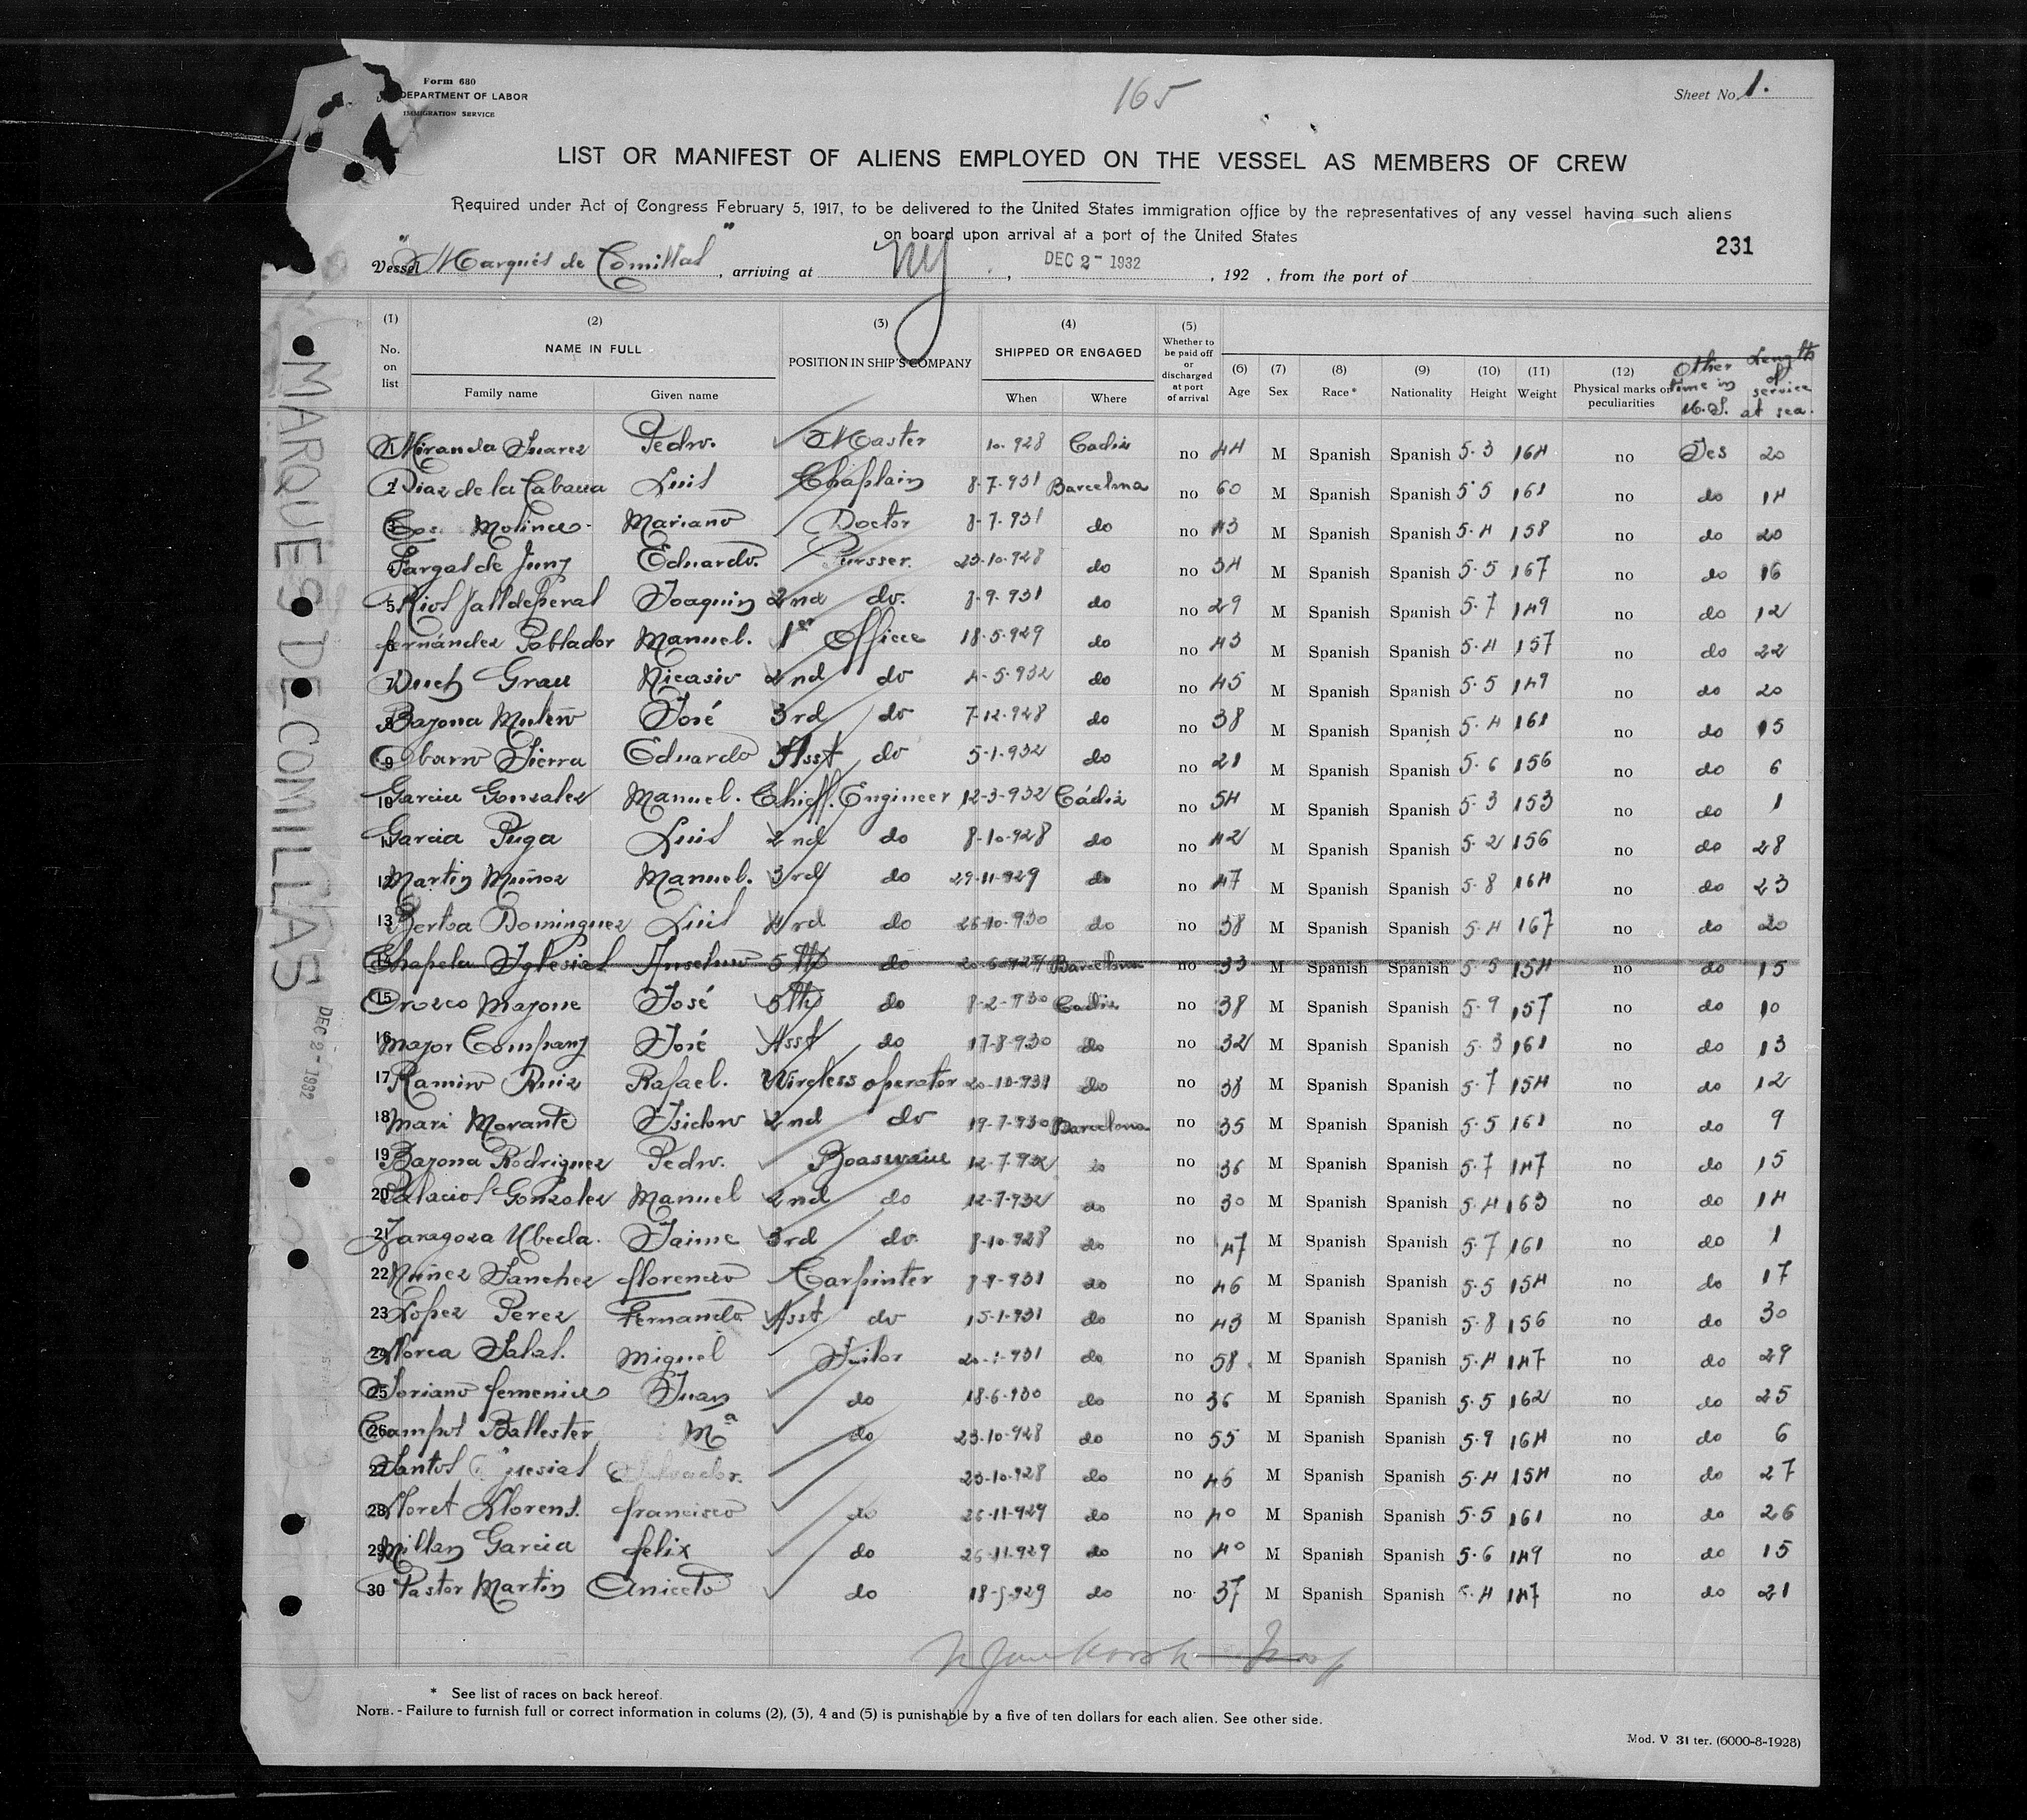 Form 680
DEPARTMENT OF LABOR
IMMIGRATION SERVICE
165
Sheet No. 1.
LIST OR MANIFEST OF ALIENS EMPLOYED ON THE VESSEL AS MEMBERS OF CREW
Required under Act of Congress February 5, 1917, to be delivered to the United States immigration office by the representatives of any vessel having such aliens
on board upon arrival at a port of the United States
231
Vessel "Marqués de Comillas", arriving at NY, DEC 2- 1932, 192 , from the port of
(1) No. on list (2) NAME IN FULL Family name Given name (3) POSITION IN SHIP'S COMPANY (4) SHIPPED OR ENGAGED When Where (5) Whether to be paid off or discharged at port of arrival (6) Age (7) Sex (8) Race* (9) Nationality (10) Height (11) Weight (12) Physical marks or peculiarities Other time in U.S. Length of service at sea.
1 Miranda Suarez Pedro. Master 10-928 Cadiz no 44 M Spanish Spanish 5-3 164 no Yes 20
2 Diaz de la Luis Chaplain 8-7-931 Barcelona no 60 M Spanish Spanish 5 5 161 no do 14
3 Molina Mariano Doctor 8-7-931 do no 43 M Spanish Spanish 5-4 158 no do 20
4 de Juny Eduardo. Pursser. 23-10-928 do no 34 M Spanish Spanish 5-5 167 no do 16
5 Rios Valldeperal Joaquin 2nd do. 8-9-931 do no 29 M Spanish Spanish 5-7 149 no do 12
6 fernández Poblador Manuel. 1er Officce 18-5-929 do no 43 M Spanish Spanish 5-4 157 no do 22
7 Duch Grau Nicasio 2nd do 4-5-932 do no 45 M Spanish Spanish 5-5 149 no do 20
8 Bayona Mulero José 3rd do 7-12-928 do no 38 M Spanish Spanish 5-4 161 no do 15
9 Obarro Sierra Eduardo Asst do 5-1-932 do no 21 M Spanish Spanish 5-6 156 no do 6
10 Garcia Gonzalez Manuel. Chieff. Engineer 12-3-932 Cádiz no 54 M Spanish Spanish 5-3 153 no do 1
11 Garcia Puga Luis 2nd do 8-10-928 do no 42 M Spanish Spanish 5-2 156 no do 28
12 Martin Muñoz Manuel. 3rd do 29-11-929 do no 47 M Spanish Spanish 5-8 164 no do 23
13 Dominguez Luis 4rd do 26-10-930 do no 38 M Spanish Spanish 5-4 167 no do 20
14 Chapela Yglesias Anselmo 5th do Barcelona no 33 M Spanish Spanish 5-5 154 no do 15
15 Orozco Mayone José 5th do 8-2-930 Cadiz no 38 M Spanish Spanish 5-9 157 no do 10
16 Mayor Company José Asst do 17-8-930 do no 32 M Spanish Spanish 5-3 161 no do 13
17 Ramiro Ruiz Rafael. Wireless operator 20-10-931 do no 38 M Spanish Spanish 5-7 154 no do 12
18 Mari Morante Isidoro 2nd do 19-7-930 Barcelona no 35 M Spanish Spanish 5-5 161 no do 9
19 Bayona Rodriguez Pedro. Boaswaiu 12-7-932 do no 36 M Spanish Spanish 5-7 147 no do 15
20 Palacios Gonzalez Manuel 2nd do 12-7-932 do no 30 M Spanish Spanish 5-4 163 no do 14
21 Zaragoza Ubeda. Jaime 3rd do 8-10-928 do no 47 M Spanish Spanish 5-7 161 no do 1
22 Nuñez Sanchez florencio Carpinter 8-9-931 do no 46 M Spanish Spanish 5-5 154 no do 17
23 Lopez Perez Fernando Asst do 15-1-931 do no 43 M Spanish Spanish 5-8 156 no do 30
24 Salas. Miguel Sailor 20-1-931 do no 58 M Spanish Spanish 5-4 147 no do 29
25 Soriano femenia Juan do 18-6-930 do no 36 M Spanish Spanish 5-5 162 no do 25
26 Campos Ballester Ma do 23-10-928 do no 55 M Spanish Spanish 5-9 164 no do 6
27 Santos Yglesias Salvador. 23-10-928 do no 46 M Spanish Spanish 5-4 154 no do 27
28 Lloret Llorens. francisco do 26-11-929 do no 40 M Spanish Spanish 5-5 161 no do 26
29 Millan Garcia felix do 26-11-929 do no 40 M Spanish Spanish 5-6 149 no do 15
30 Pastor Martin Aniceto do 18-5-929 do no 37 M Spanish Spanish 5-4 147 no do 21
* See list of races on back hereof.
NOTE. - Failure to furnish full or correct information in colums (2), (3), 4 and (5) is punishable by a five of ten dollars for each alien. See other side.
Mod. V 31 ter. (6000-8-1928)
MARQUES DE COMILLAS
DEC 2- 1932